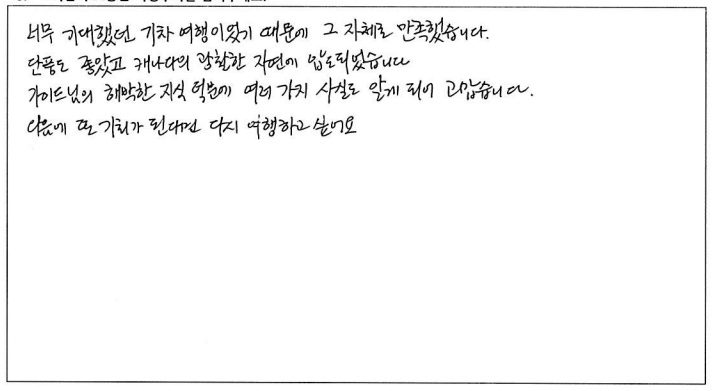 너무 기대했던 기차 여행이었기 때문에 그 자체로 만족했습니다.
단풍도 좋았고 캐나다의 광활한 자연에 압도되었습니다
가이드님의 해박한 지식 덕분에 여러 가지 사실도 알게 되어 고맙습니다.
다음에 또 기회가 된다면 다시 여행하고 싶어요